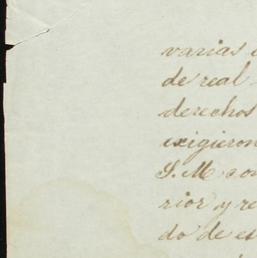 varias
de real
derechos
exigieron
S. M. con
rior y re
do de es